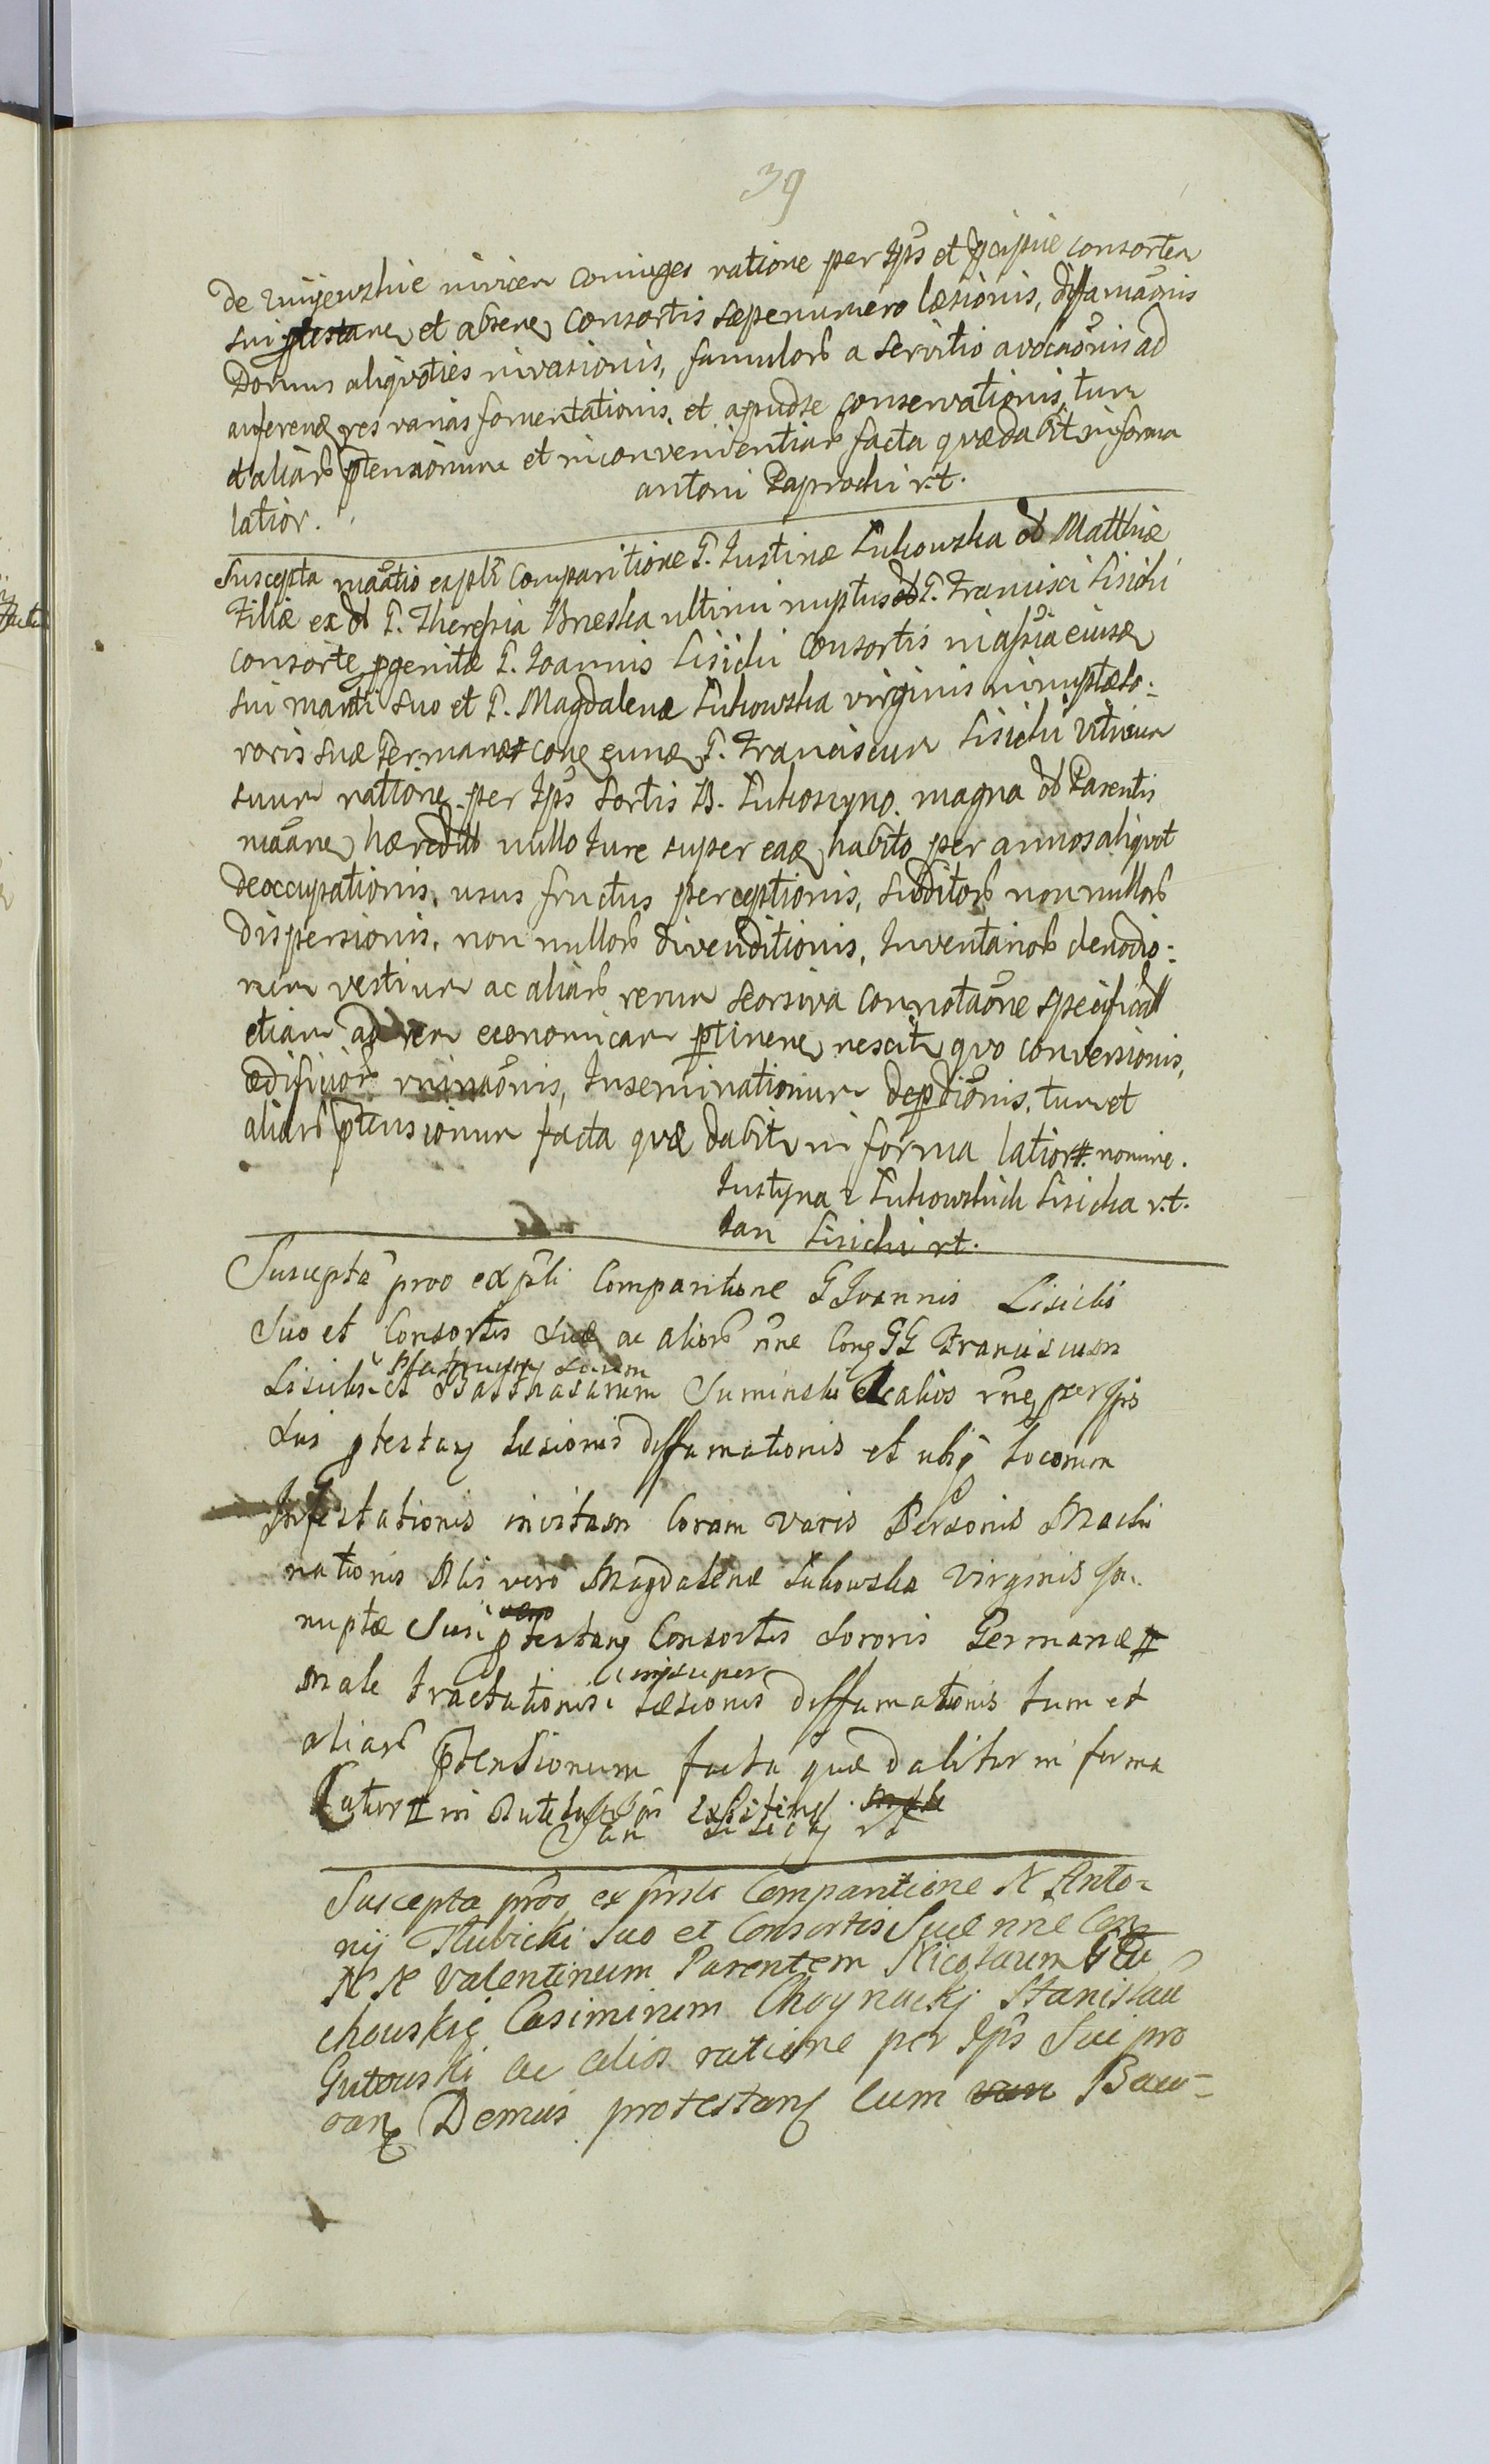 39
de Zmijewskie invicem coniuges ratione per Ips et pcipue consortem
sui ptestane et absene Consortis sæpenumero læsionis, diffamaonis
Domus aliquoties invasionis, famulorb a servitio avocaonis ad
auferend res varias fomentationis, et apudse conservationis, tum
et aliarb ptensionum et inconvenientiarb facta quædabit in forma
latior.
antoni Paprocki r.t.
Suscepta maatio ex psti Comparitione G. Justinæ Lukowska od Matthiæ
Filliæ ex od G. Theressia Brzeska ultimi nuptus od G. Francisci Lisicki
consorte pgenitæ G. Joannis Lisicki Consortis in assia eiusd
sui mariti suo et G. Magdalenæ Lukowska virginis innuptæ so:
roris suæ Germanæ cone eund G. Franciscum Lisicki Vitricum
suum ratione per Ips Sortis B. Lukoszyno magna od Parentis
maane hæredit nullo Jure super ead habito per annos aliquot
deoccupationis, usus fructus perceptionis, subditorb nonnullorb
dispersionis, non nullorb divenditionis, Inventariorb
rum vestium ac aliarb rerum seorsiva connotaone specificat
etiam ad rem economicam ptinene nescit quo conversionis,
ædificiorb ruinaonis, Inseminationum depdionis, tum et
aliarb ptensionum facta quæ dabit in forma latior # nomine.
Justyna z Lukowskich Lisicka r.t.
Jan Lisicki rt.
Suscepta proo ex psti Comparitione G Joannis Lisicki
Suo et Consortis Suæ ac aliorb nne Cong GG Franciscum
Patruum Suum
Lisicki et Balthasarum Suminski et alios rne per Ips
Sui ptestang læsionis diffamationis et ubiq locorum
Infestationis invitam Coram varis Personis Machi
nationis vero Magdalenæ Lukowska Virginis In:
nuptæ Sui ptestang Consortis Sororis Germanæ #
insuper
male tractationis læsionis diffamationis tum et
aliarb ptensionum facta quæ dabitur in forma
Latior # in
Jan Lisicki rt
Suscepta proo ex prsti Comparitione N Anto=
nij Tlubicki Suo et Consortis Suæ nne Con
N N Valentinum Parentem Nicolaum Glu
chowskie Casimirum Choynacki Stanislau
Gutowski ac alios ratione per Ips Sui pro
Domus protestang cum